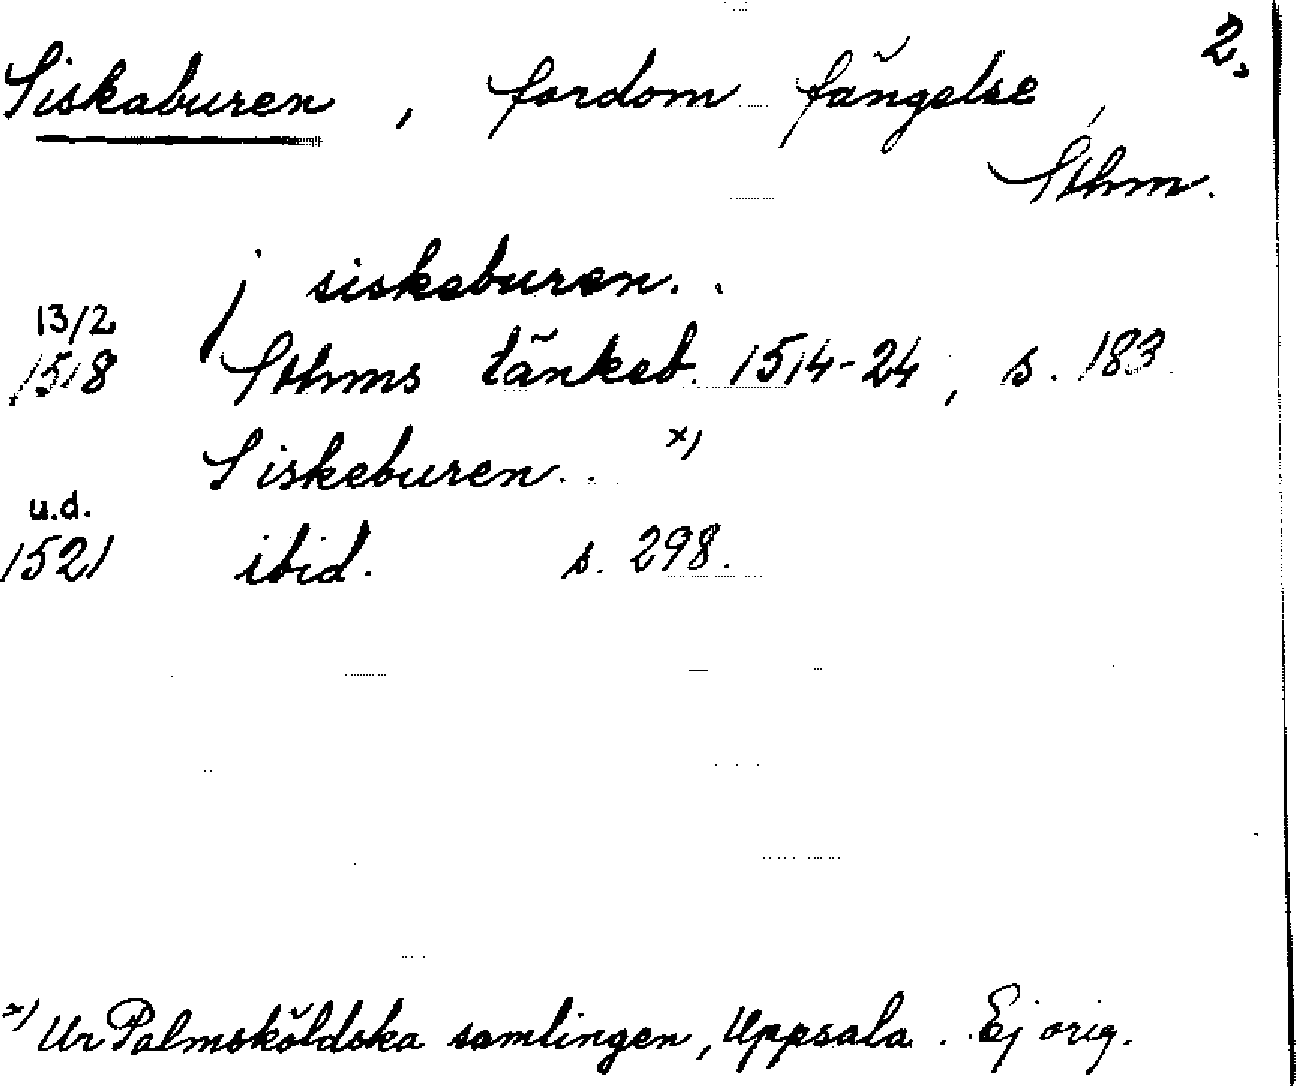 2.
Siskaburen, fordom fängelse,
Sthm.
j siskeburen..
13/2
1518 Sthms tänkeb. 1514-24, s. 183
Siskeburen.. x)
u.d.
1521 ibid. s. 298.
x) Ur Palmsköldska samlingen, Uppsala. Ej orig.